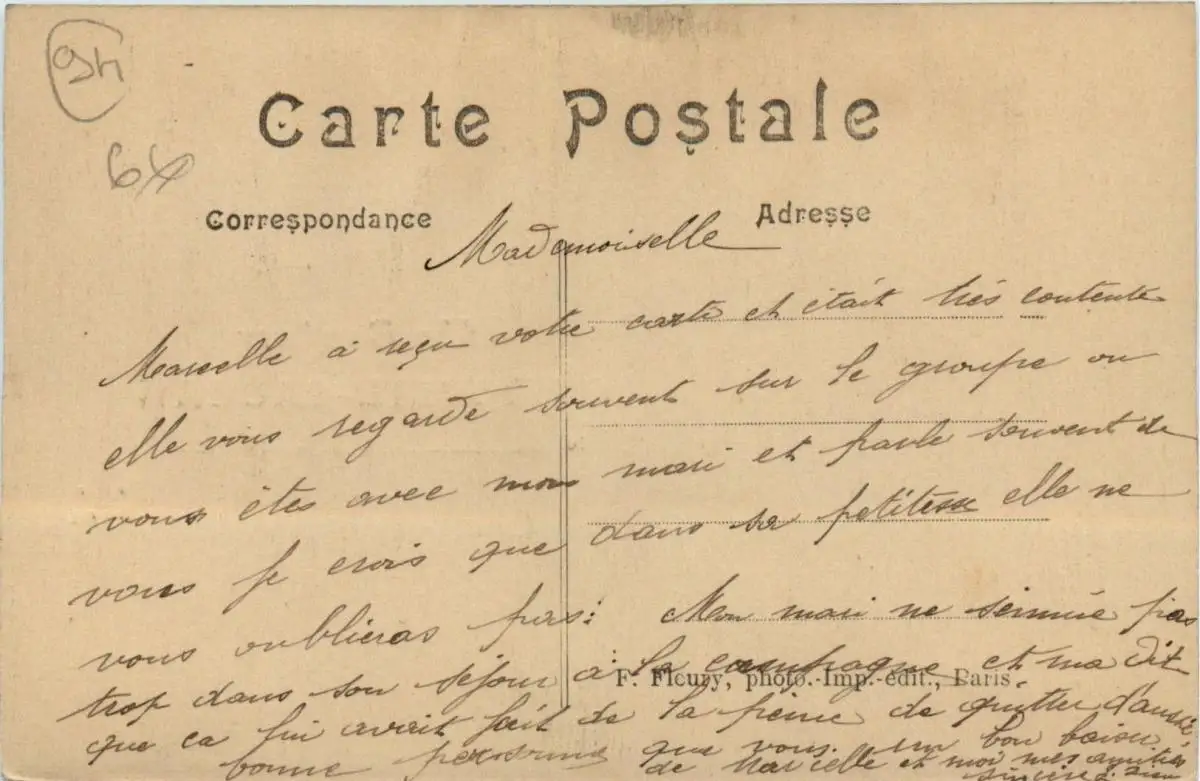 94
64
Carte Postale
Correspondance
Adresse
Mademoiselle
Marcelle a reçu votre carte et était très contente
elle vous regarde souvent sur le groupe ou
vous êtes avec mon mari et parle souvent de
vous je crois que dans sa petitesse elle ne
vous oublieras pas: Mon mari ne s'ennuie pas
trop dans son séjour à la campagne et ma dit
F. Fleury, photo.-Imp.-édit., Paris.
que ca lui avait fait de la peine de quitter
bonne personne que vous. un bon baiser
de Marcelle et moi mes amitiés